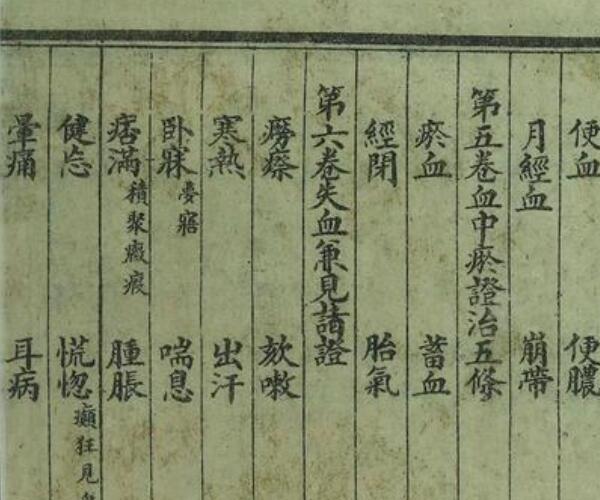 便血 便膿
月經血 崩帶
第五卷血中瘀證治五條
瘀血 蓄血
經閉 胎氣
第六卷失血兼見諸證
癆瘵 欬嗽
寒熱 出汗
卧寐夢寤 喘息
痞滿積聚癥瘕 腫脹
健忘 慌惚癲狂見
暈痛 耳病